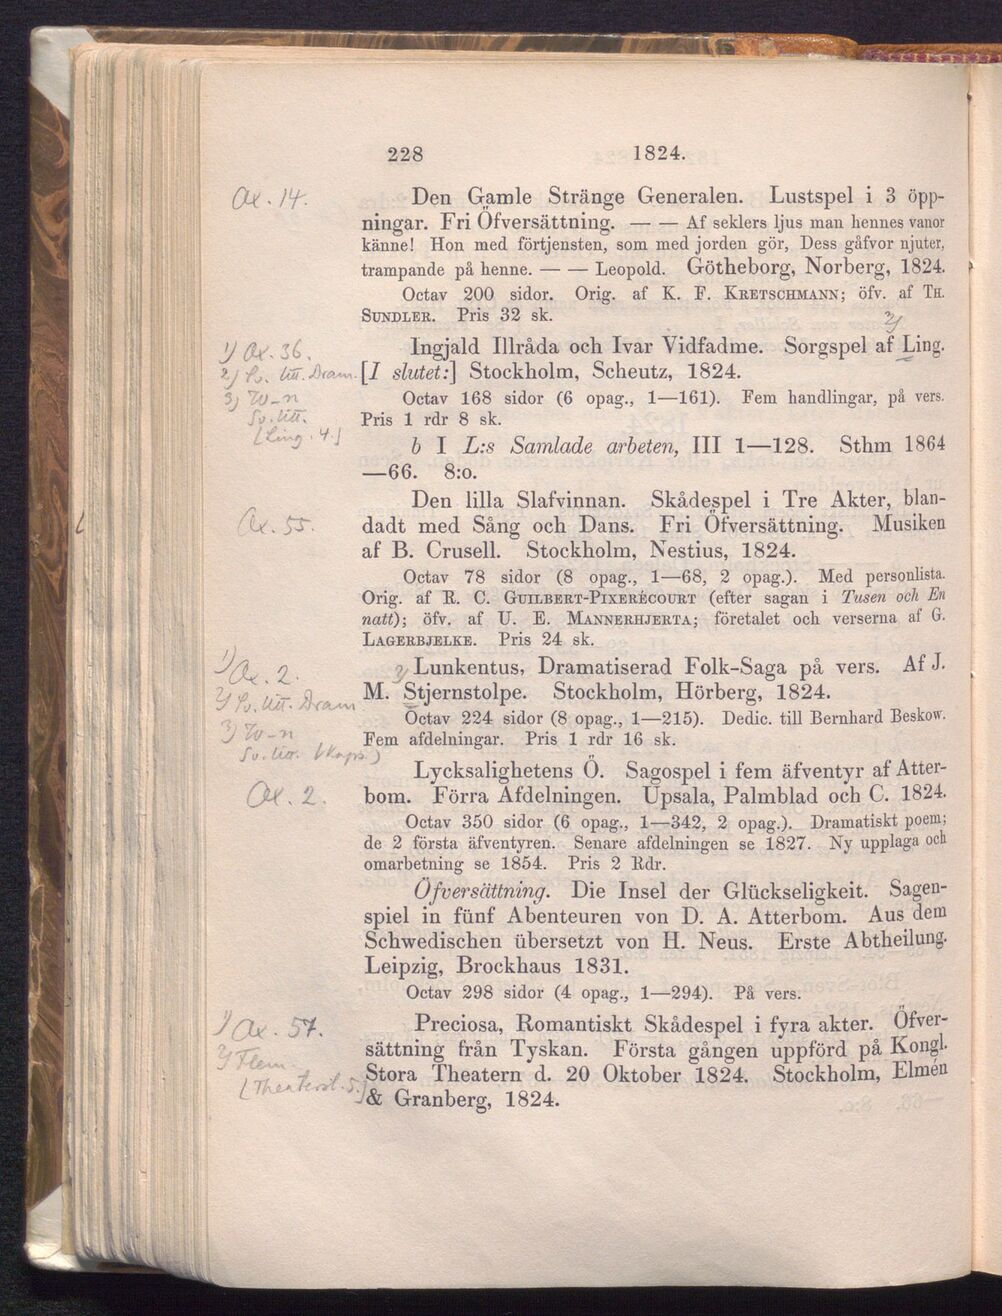 228 1824.
Ax. 14.
Den Gamle Stränge Generalen. Lustspel i 3 öpp-
ningar. Fri Öfversättning. — — Af seklers ljus man hennes vanor
känne! Hon med förtjensten, som med jorden gör, Dess gåfvor njuter,
trampande på henne. — — Leopold. Götheborg, Norberg, 1824.
Octav 200 sidor. Orig. af K. F. Kretschmann; öfv. af Th.
Sundler. Pris 32 sk.
2)
1) Ax. 36.
2) Sv. litt. Dram.
3) W-n
Sv. litt.
[Ling. 4.]
Ingjald Illråda och Ivar Vidfadme. Sorgspel af Ling.
[I slutet:] Stockholm, Scheutz, 1824.
Octav 168 sidor (6 opag., 1—161). Fem handlingar, på vers.
Pris 1 rdr 8 sk.
b I L:s Samlade arbeten, III 1—128. Sthm 1864
—66. 8:o.
Ax. 55.
Den lilla Slafvinnan. Skådespel i Tre Akter, blan-
dadt med Sång och Dans. Fri Öfversättning. Musiken
af B. Crusell. Stockholm, Nestius, 1824.
Octav 78 sidor (8 opag., 1—68, 2 opag.). Med personlista.
Orig. af R. C. Guilbert-Pixerécourt (efter sagan i Tusen och En
natt); öfv. af U. E. Mannerhjerta; företalet och verserna af G.
Lagerbjelke. Pris 24 sk.
1) Ax. 2.
2) Sv. litt. Dram
3) W-n
Sv. litt.
2) Lunkentus, Dramatiserad Folk-Saga på vers. Af J.
M. Stjernstolpe. Stockholm, Hörberg, 1824.
Octav 224 sidor (8 opag., 1—215). Dedic. till Bernhard Beskow.
Fem afdelningar. Pris 1 rdr 16 sk.
Ax. 2.
Lycksalighetens Ö. Sagospel i fem äfventyr af Atter-
bom. Förra Afdelningen. Upsala, Palmblad och C. 1824.
Octav 350 sidor (6 opag., 1—342, 2 opag.). Dramatiskt poem;
de 2 första äfventyren. Senare afdelningen se 1827. Ny upplaga och
omarbetning se 1854. Pris 2 Rdr.
Öfversättning. Die Insel der Glückseligkeit. Sagen-
spiel in fünf Abenteuren von D. A. Atterbom. Aus dem
Schwedischen übersetzt von H. Neus. Erste Abtheilung.
Leipzig, Brockhaus 1831.
Octav 298 sidor (4 opag., 1—294). På vers.
1) Ax. 57.
2) Flem.
Preciosa, Romantiskt Skådespel i fyra akter. Öfver-
sättning från Tyskan. Första gången uppförd på Kongl.
Stora Theatern d. 20 Oktober 1824. Stockholm, Elmén
& Granberg, 1824.